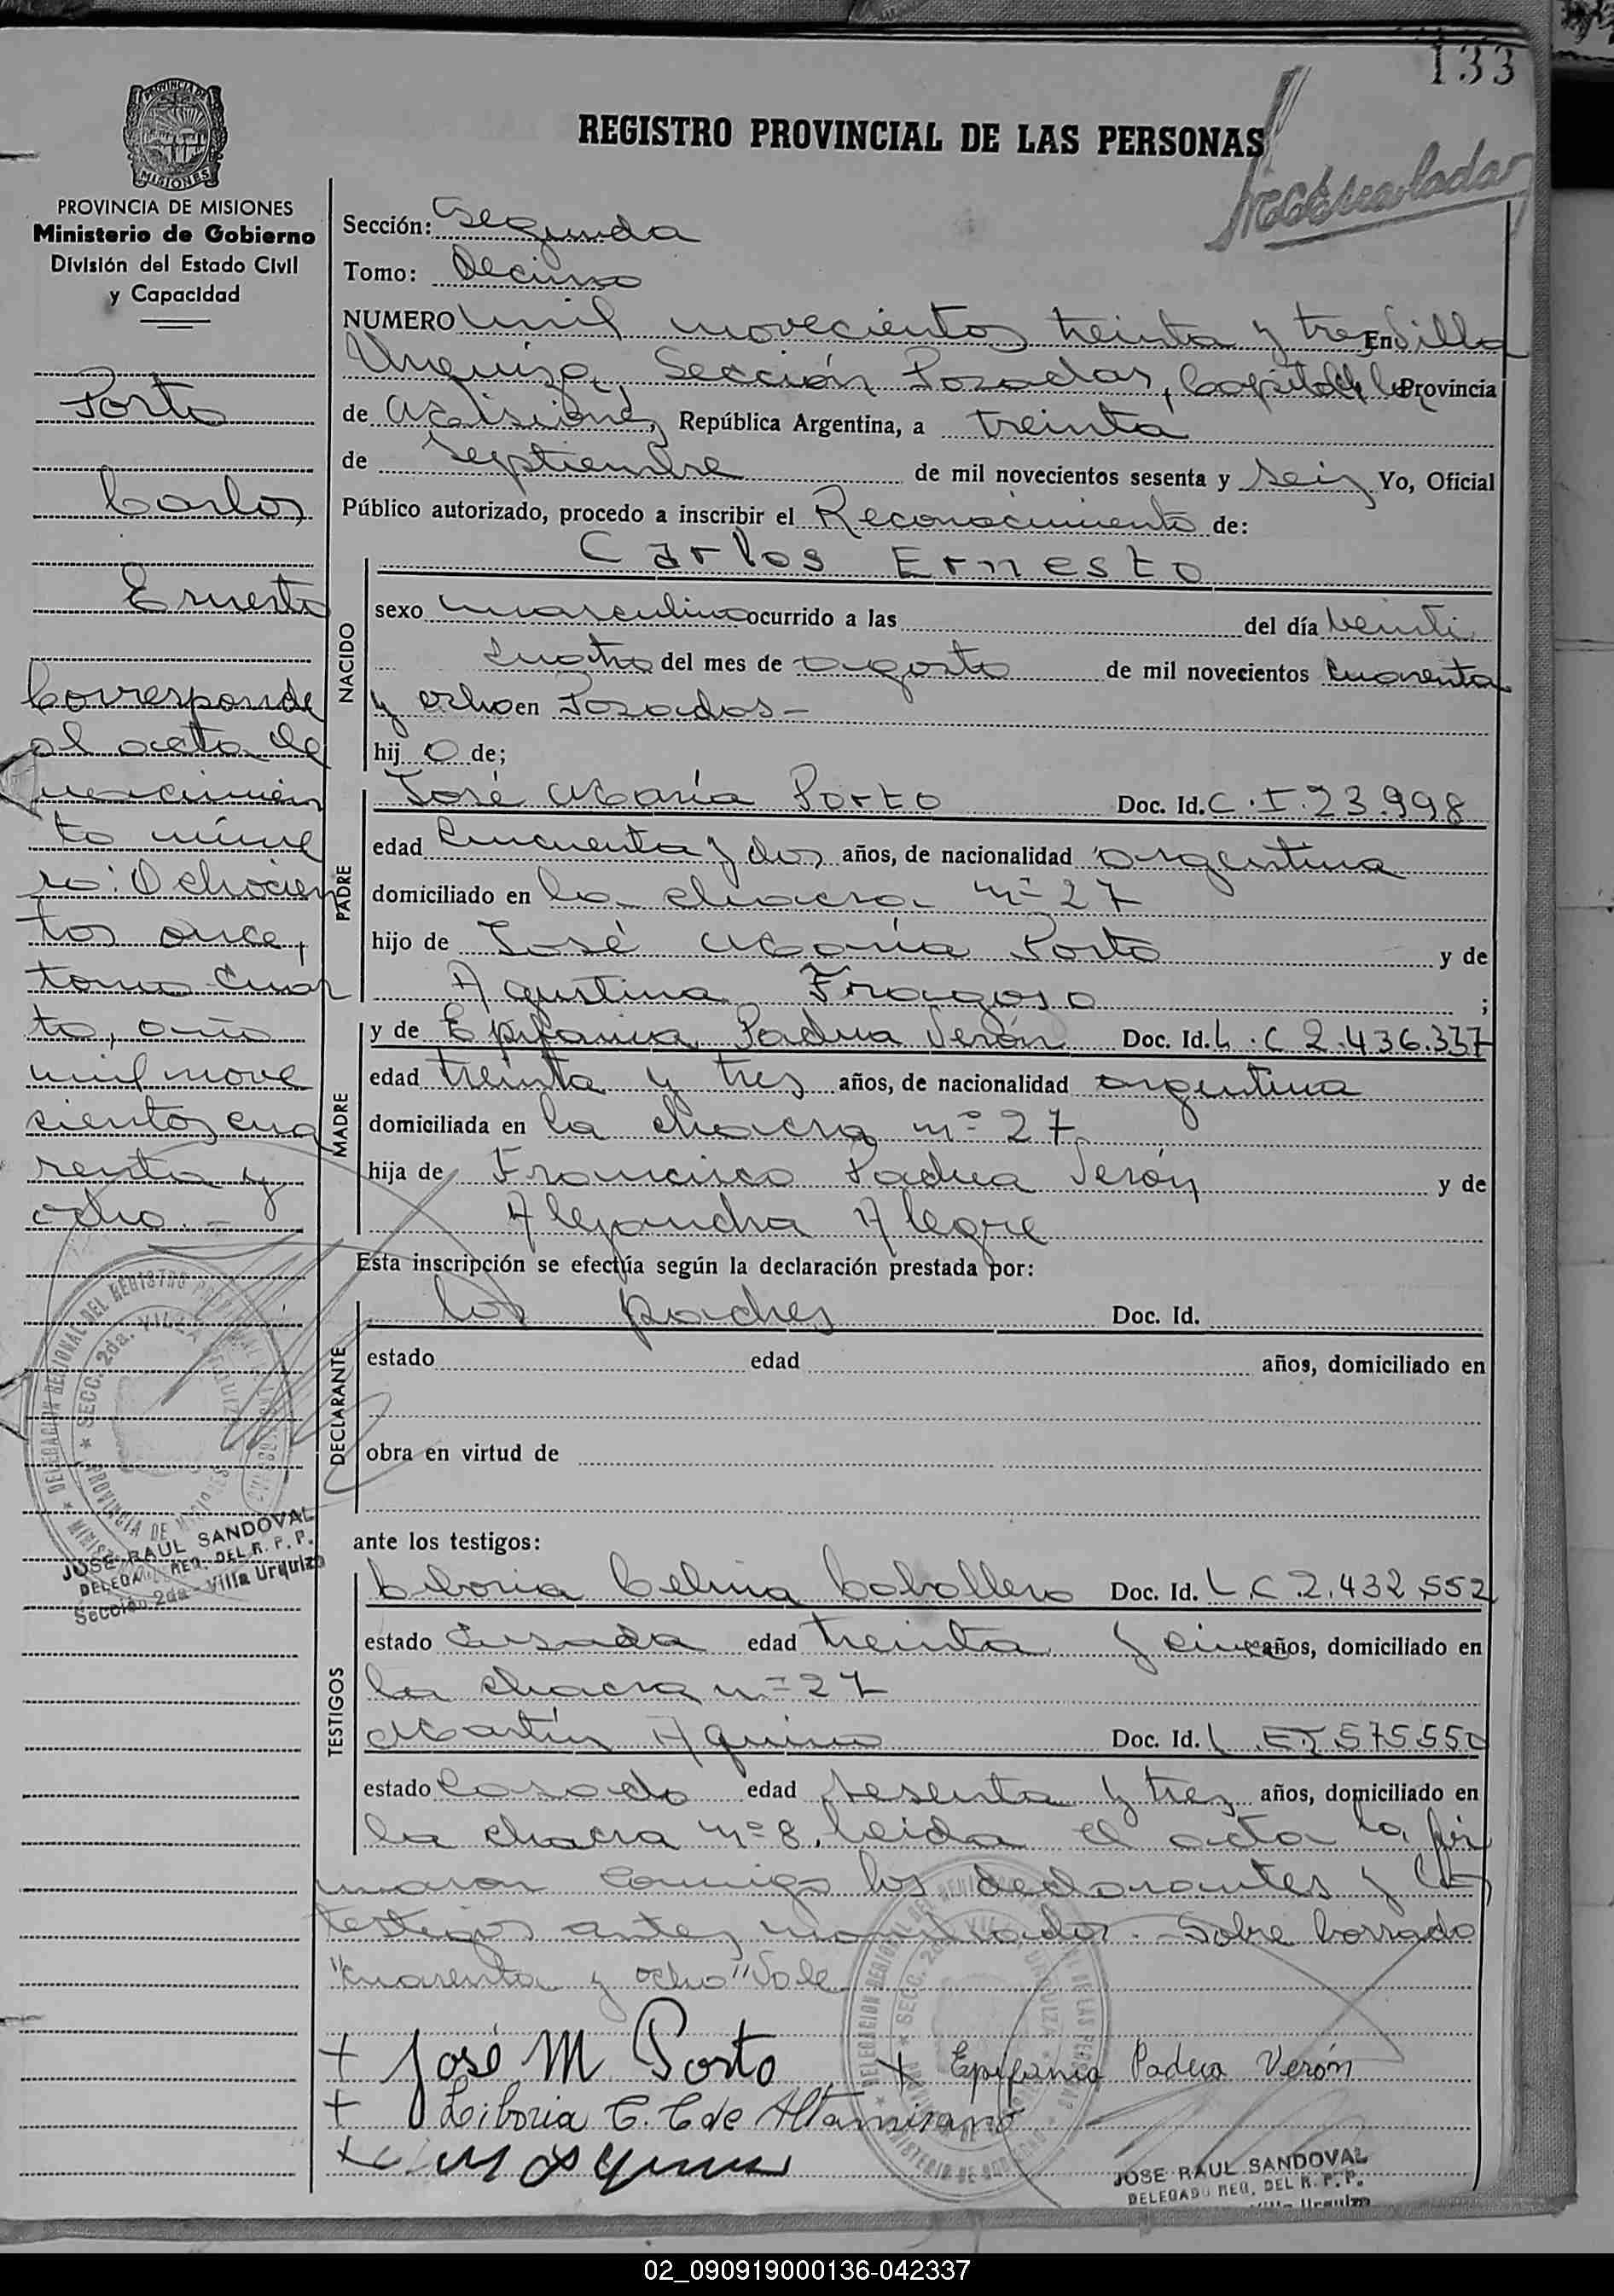 133
REGISTRO PROVINCIAL DE LAS PERSONAS
PROVINCIA DE MISIONES
Ministerio de Gobierno
División del Estado Civil
y Capacidad
Porto
Carlos
Ernesto
Corresponde
al acta de
nacimien
to núme
ro: Ochocien
tos once,
tomo Cuar
to, año
mil nove
sientos cua
renta y
ocho.-
JOSE RAUL SANDOVAL
DELEGADO REG. DEL R. P. P.
Sección 2da - Villa Urquiza
Sección: Segunda
Tomo: Decimo
NUMERO mil novecientos treinta y tres En Villa
Urquiza, Sección Posadas, Capital de la Provincia
de Misiones, República Argentina, a treinta
de Septiembre de mil novecientos sesenta y seis Yo, Oficial
Público autorizado, procedo a inscribir el Reconocimiento de:
Carlos Ernesto
NACIDO
sexo masculino ocurrido a las del día veinti
cuatro del mes de agosto de mil novecientos cuarenta
y ocho en Posadas-
hij o de;
PADRE
José María Porto Doc. Id. C.I. 23.998
edad Cincuenta y dos años, de nacionalidad argentina
domiciliado en la chacra nº 27
hijo de José María Porto y de
Agustina Fragoso ;
MADRE
y de Epifania Padua Verón Doc. Id. L.C 2.436.337
edad treinta y tres años, de nacionalidad argentina
domiciliada en la chacra nº 27
hija de Francisco Padua Verón y de
Alejandra Alegre
Esta inscripción se efectúa según la declaración prestada por:
DECLARANTE
los padres Doc. Id.
estado edad años, domiciliado en
obra en virtud de
ante los testigos:
TESTIGOS
Liboria Celina Caballero Doc. Id. L C 2.432.552
estado Casada edad treinta y cinco años, domiciliado en
la chacra nº 27
Martín Aquino Doc. Id. L
estado Casado edad sesenta y tres años, domiciliado en
la chacra nº 8. leida el acta la fir
maron conmigo los declarantes y los
testigos antes mencionados.- Sobre borrado
"cuarenta y ocho" Vale
+ José M Porto + Epifania Padua Verón
+ Liboria C. C de Altamirano
JOSE RAUL SANDOVAL
DELEGADO REG. DEL R. P. P.
Villa Urquiza
02_090919000136-042337